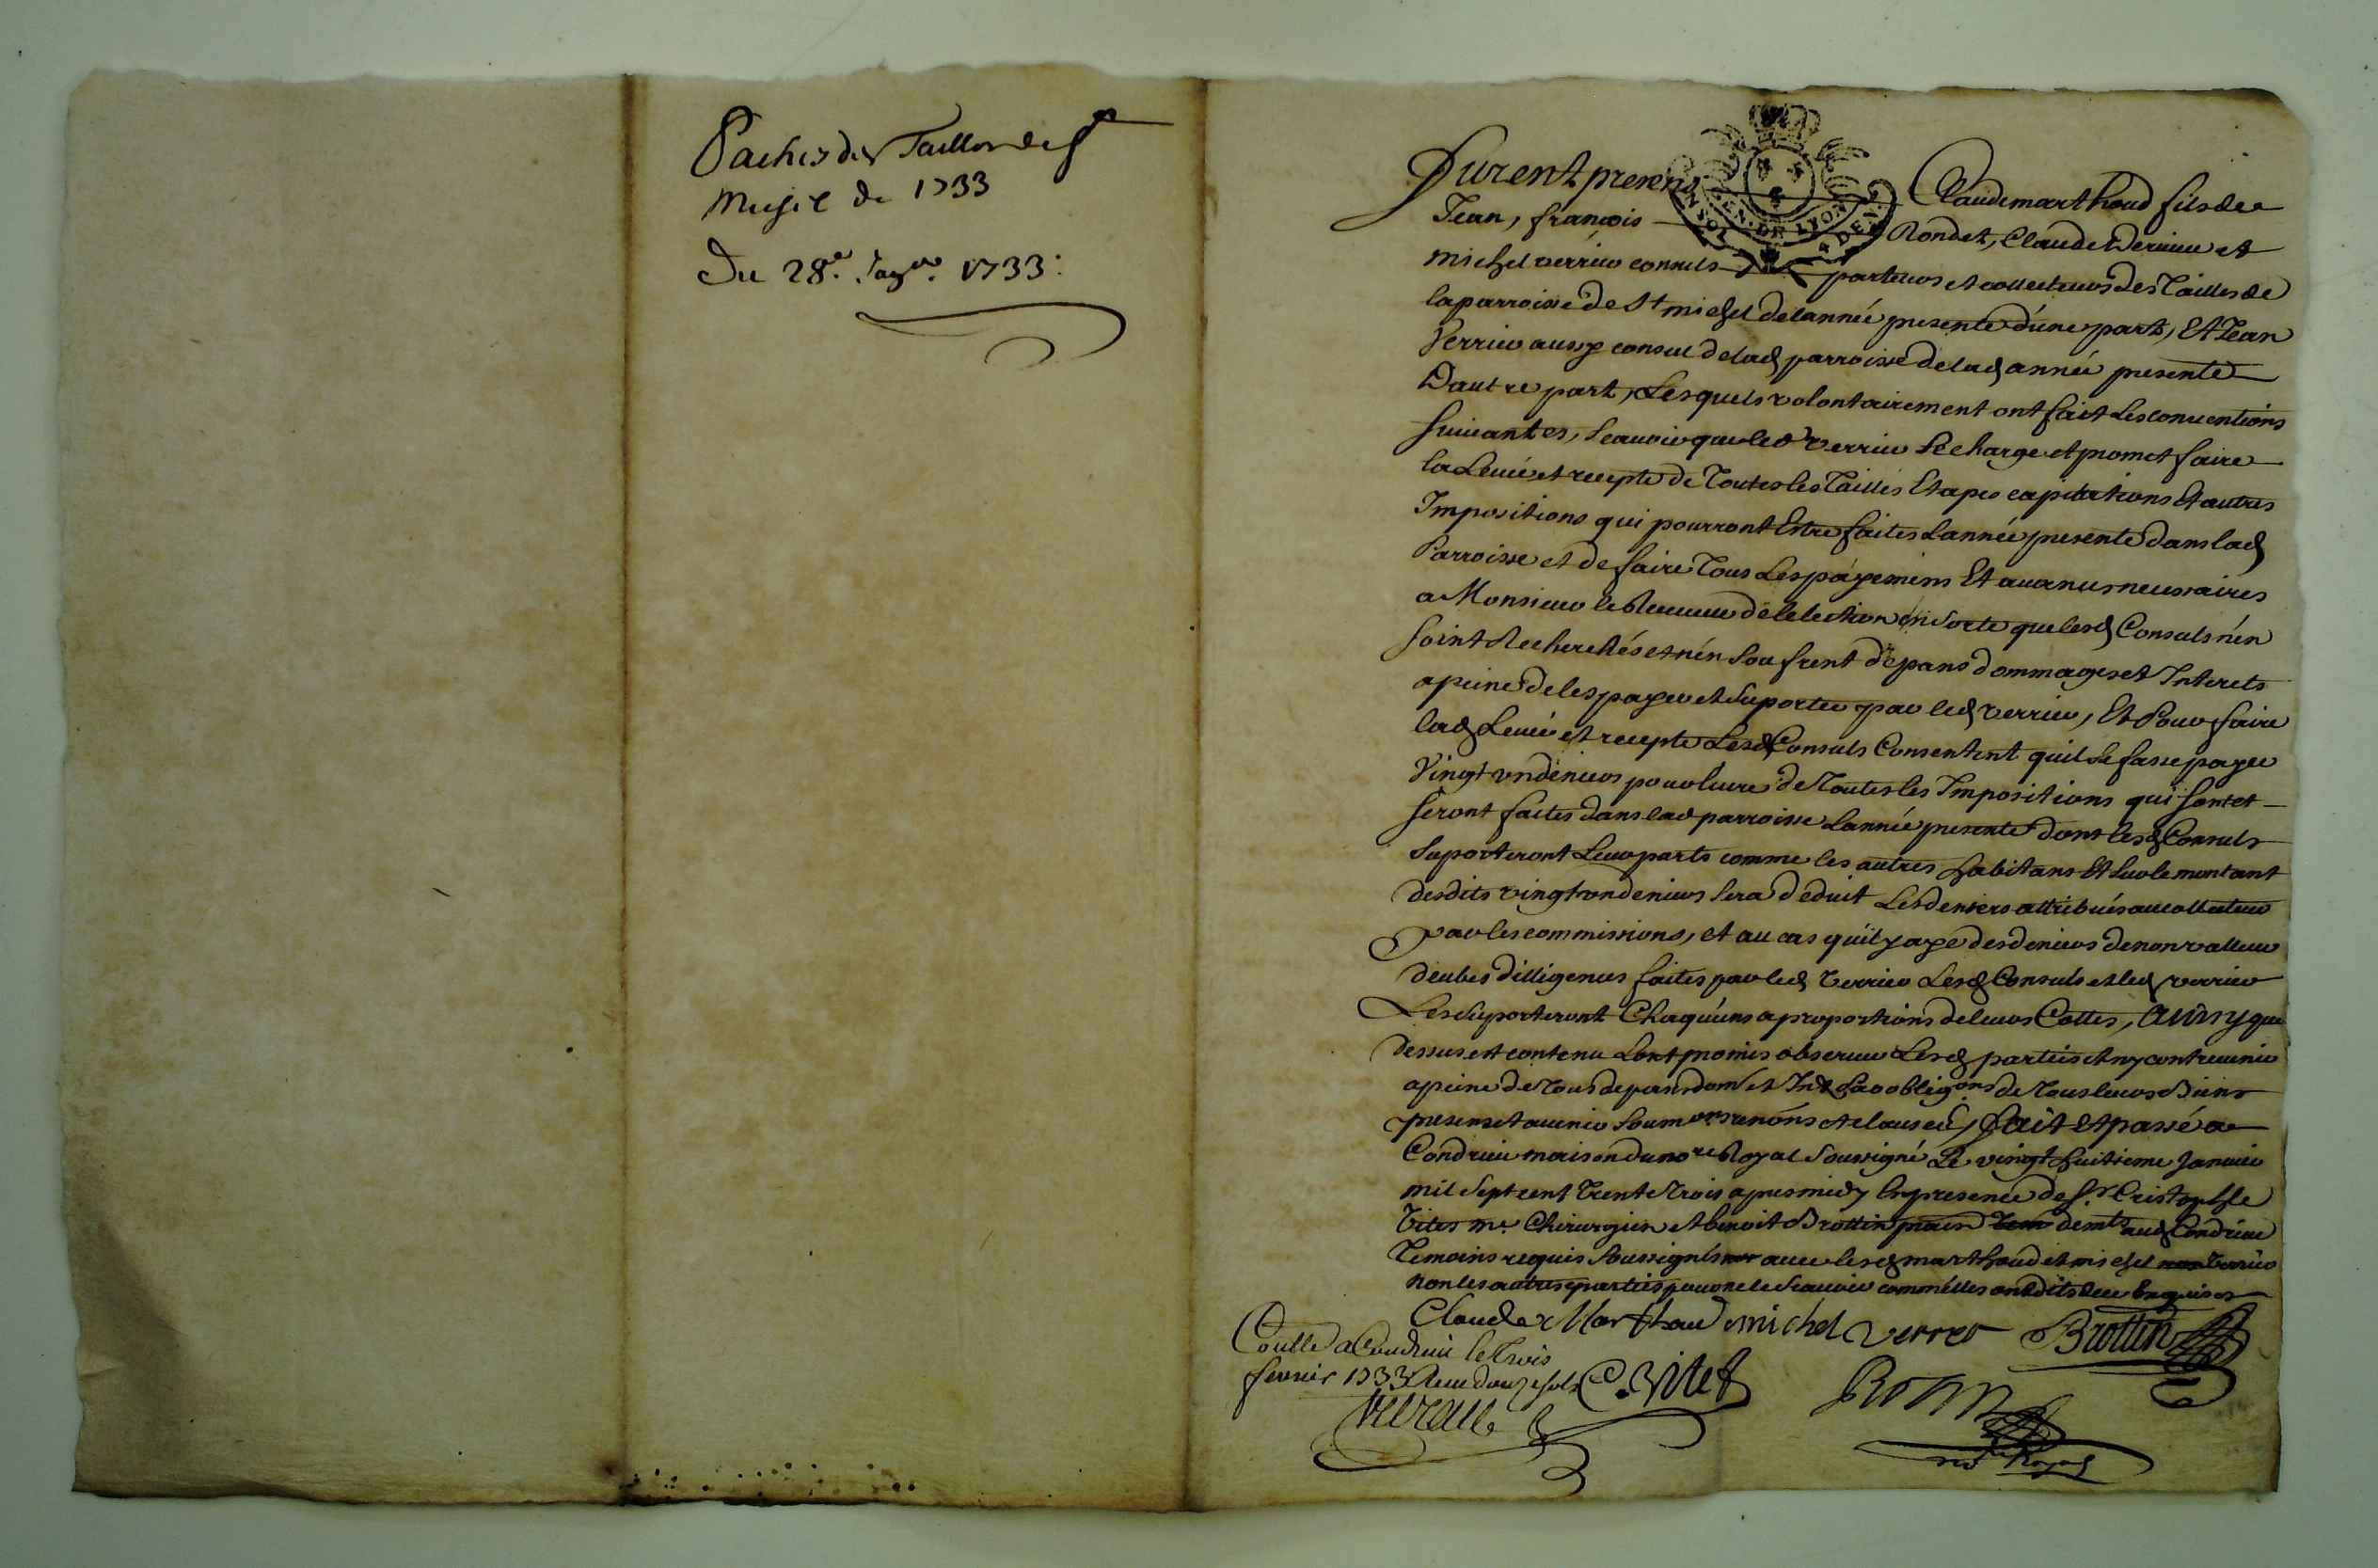 Paches des Tailles de St
Michel de 1733
Du 28e. Janer. 1733.
Furent presens Claude marthoud fils de
GEN. DE LYON
UN SOL 4 DEN.
Jean, francois Rondet, Claude Verrieu et
michel verrieu consuls porteurs et collecteurs des Tailles de
la parroisse de St michel de lannée presente d'une part, Et Jean
Verrieu aussy consul de lad parroisse de lad année presente
Dautre part, Lesquels volontairement ont fait les conventions
suivantes, scavoir que led verrieu se charge et promet faire
la Levée et recepte de Toutes les Tailles Etapes capitations Et autres
Impositions qui pourront Estre faites Lannée presente dans lad
Parroisse et de faire Tous Les payemens Et avances necessaires
a Monsieur le Receveur de lelection en sorte que lesd Consuls n'en
soint Recherchés et n'en soufrent depans dommages et Interets
a peine de les payer et suporter par led verrieu, Et Pour faire
lad Levée et recepte Lesd Consuls Consentent quil se fasse payer
Vingt un deniers pour livre de Toutes les Impositions qui sont et
seront faites dans lad parroisse Lannée presente dont lesd Consuls
suporteront Leur parts comme les autres habitans Et sur le montant
desdits vingt un deniers sera deduit Les deniers attribués au collecteur
par les commissions, et au cas quil y aye des deniers de non valleur
deubes dilligences faites par led verrieu Lesd Consuls et led verrieu
Les suporteront Chaqu'uns a proportions de leurs Cottes, Ainsy que
dessus est contenu Lont promis observer Lesd parties et ny contrevenir
a peine de Tous depans dom et Int par obligons de Tous leurs Biens
presens et avenir soumons renons et clauses, fait Et passé a
Condrieu maison du nore Royal soussigné Le vingt huitieme Janvier
mil sept cent Trente Trois apres midy En presence de sr. Cristophle
Vitet me. Chirurgien et benoit Brottin demts aud Condrieu
Temoins requis soussignés avec lesd marthoud et michel verrieu
non les autres parties pour ne le scavoir comme elles ont dits de ce Enquises
Claude Marthaud michel verrer Brottin
Coulle a Condrieu le Trois
fevrier 1733 Receu douze sols C. Vitet
nore Royal